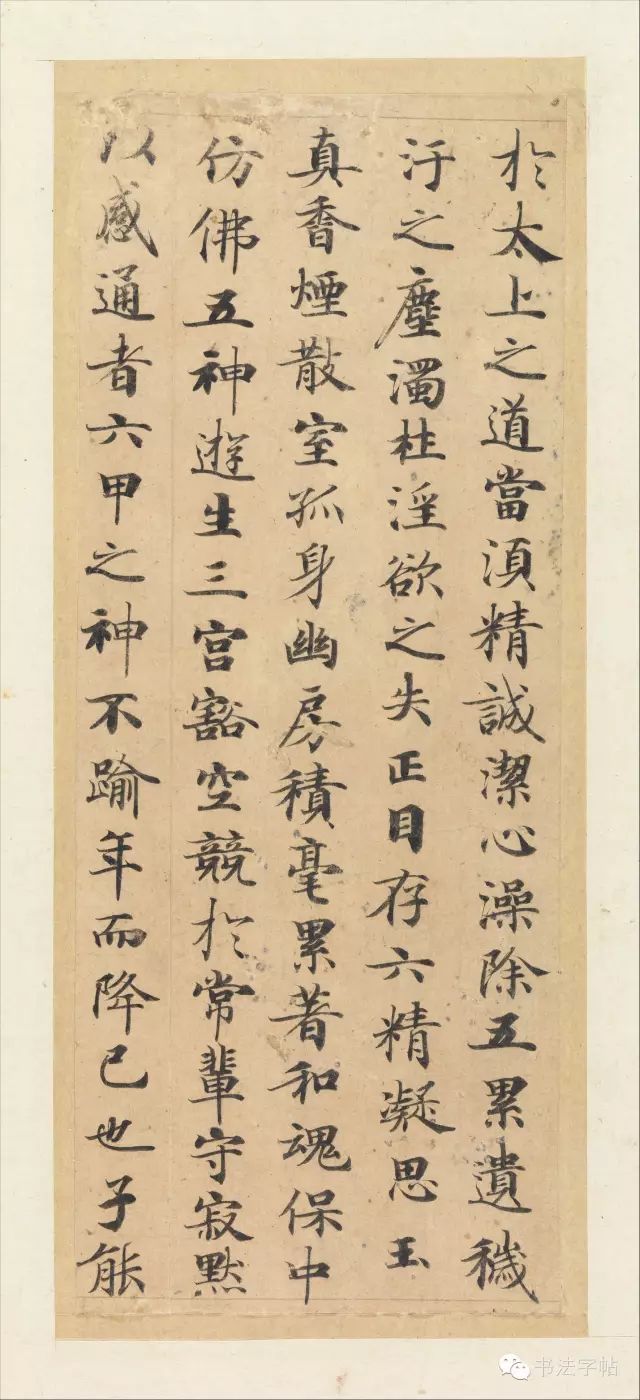 於太上之道當湏精誠潔心澡除五累遺穢
汙之塵濁杜淫欲之失正目存六精凝思玉
真香煙散室孤身幽房積毫累著和魂保中
仿佛五神遊生三宮豁空競於常輩守寂默
以感通者六甲之神不踰年而降已也子能
书法字帖